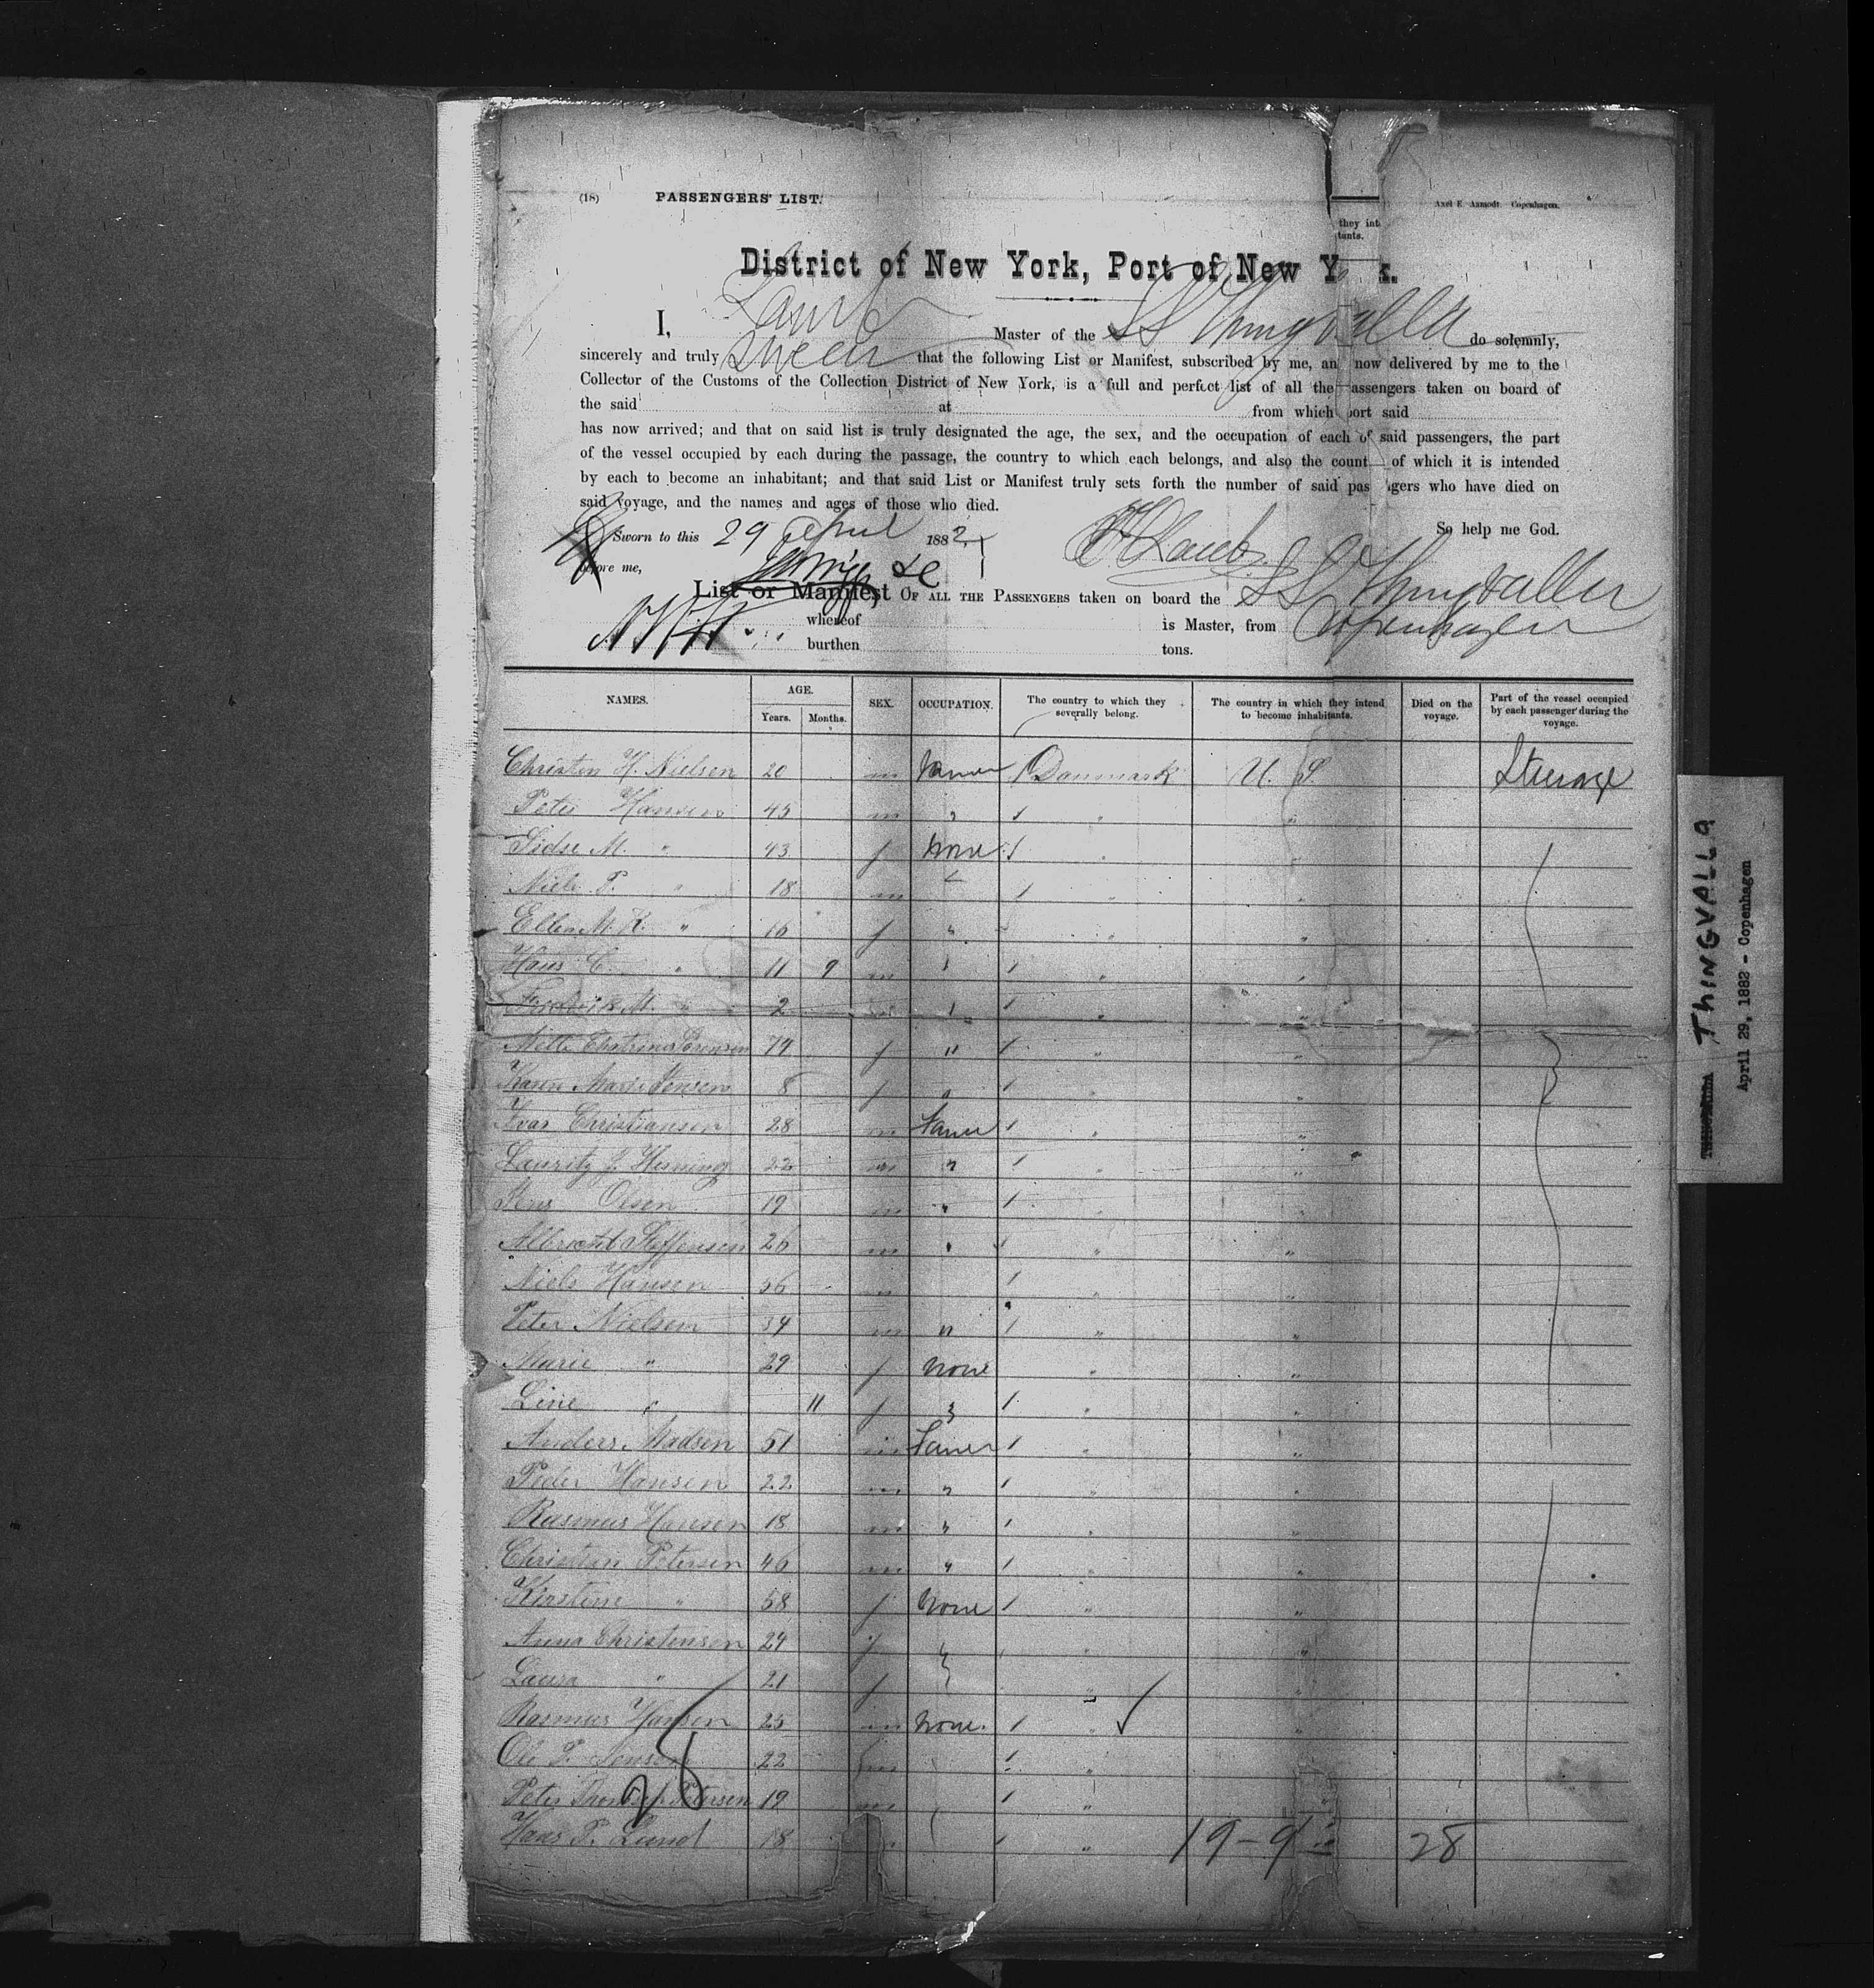 (18) PASSENGERS' LIST. Axel E. Aamodt. Copenhagen.
they int
tants.
District of New York, Port of New Y k.
I, Laub Master of the SS Thingvalla do solemnly,
sincerely and truly swear that the following List or Manifest, subscribed by me, an now delivered by me to the
Collector of the Customs of the Collection District of New York, is a full and perfect list of all the assengers taken on board of
the said at from which port said
has now arrived; and that on said list is truly designated the age, the sex, and the occupation of each of said passengers, the part
of the vessel occupied by each during the passage, the country to which each belongs, and also the count of which it is intended
by each to become an inhabitant; and that said List or Manifest truly sets forth the number of said pas gers who have died on
said voyage, and the names and ages of those who died.
Sworn to this 29 April 1882 So help me God.
before me, Laub
List or Manifest, OF ALL THE PASSENGERS taken on board the SS Thingvalla
whereof is Master, from Copenhagen
burthen tons.
NAMES. AGE. Years. Months. SEX. OCCUPATION. The country to which they severally belong. The country in which they intend to become inhabitants. Died on the voyage. Part of the vessel occupied by each passenger during the voyage.
Christen H. Nielsen 20 m Farmer / Danmark U. S. Steerage
Peter Hansen 45 m " / " "
Sidse M. " 43 f None / " "
Niels P. " 18 m " / " "
Ellen M. K. " 16 f " " "
Hans C. " 11 9 m " / " "
Frederik M. " 2 m " / " "
Mette Chatrine Sörensen 74 f " / " "
Karen Marie Jensen 8 f " / " "
Ivar Christiansen 28 m Farmer / " "
Lauritz J. Henning 22 m " / " "
Jens Olsen 19 m " / " "
Albrecht Steffensen 26 m " / " "
Niels Hansen 56 m / " "
Peter Nielsen 34 m " / " "
Marie " 29 f None " "
Line " 11 f " / " "
Anders Madsen 51 m Farmer / " "
Peder Hansen 22 m " / " "
Rasmus Hansen 18 m " / " "
Christian Petersen 46 m " / " "
Kirstine " 58 f None / " "
Anna Christensen 24 f " " "
Laura " 21 f " " "
Rasmus Hansen 25 m None / " ✓ "
Ole P. Jensen 22 m / "
Peter Petersen 19 m / " "
Hans P. Lund 18 / " "
28 19-9 28
THINGVALLA
April 29, 1882 - Copenhagen